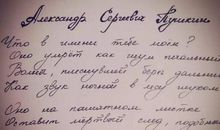 Александр Сергеевич Пушкин
Что в имени тебе моём?
Оно умрёт как шум печальный
Волны, плеснувшей в берег дальный
Как звук ночной в лесу глухом.
Оно на памятном листке
Оставит мёртвый след, подобный